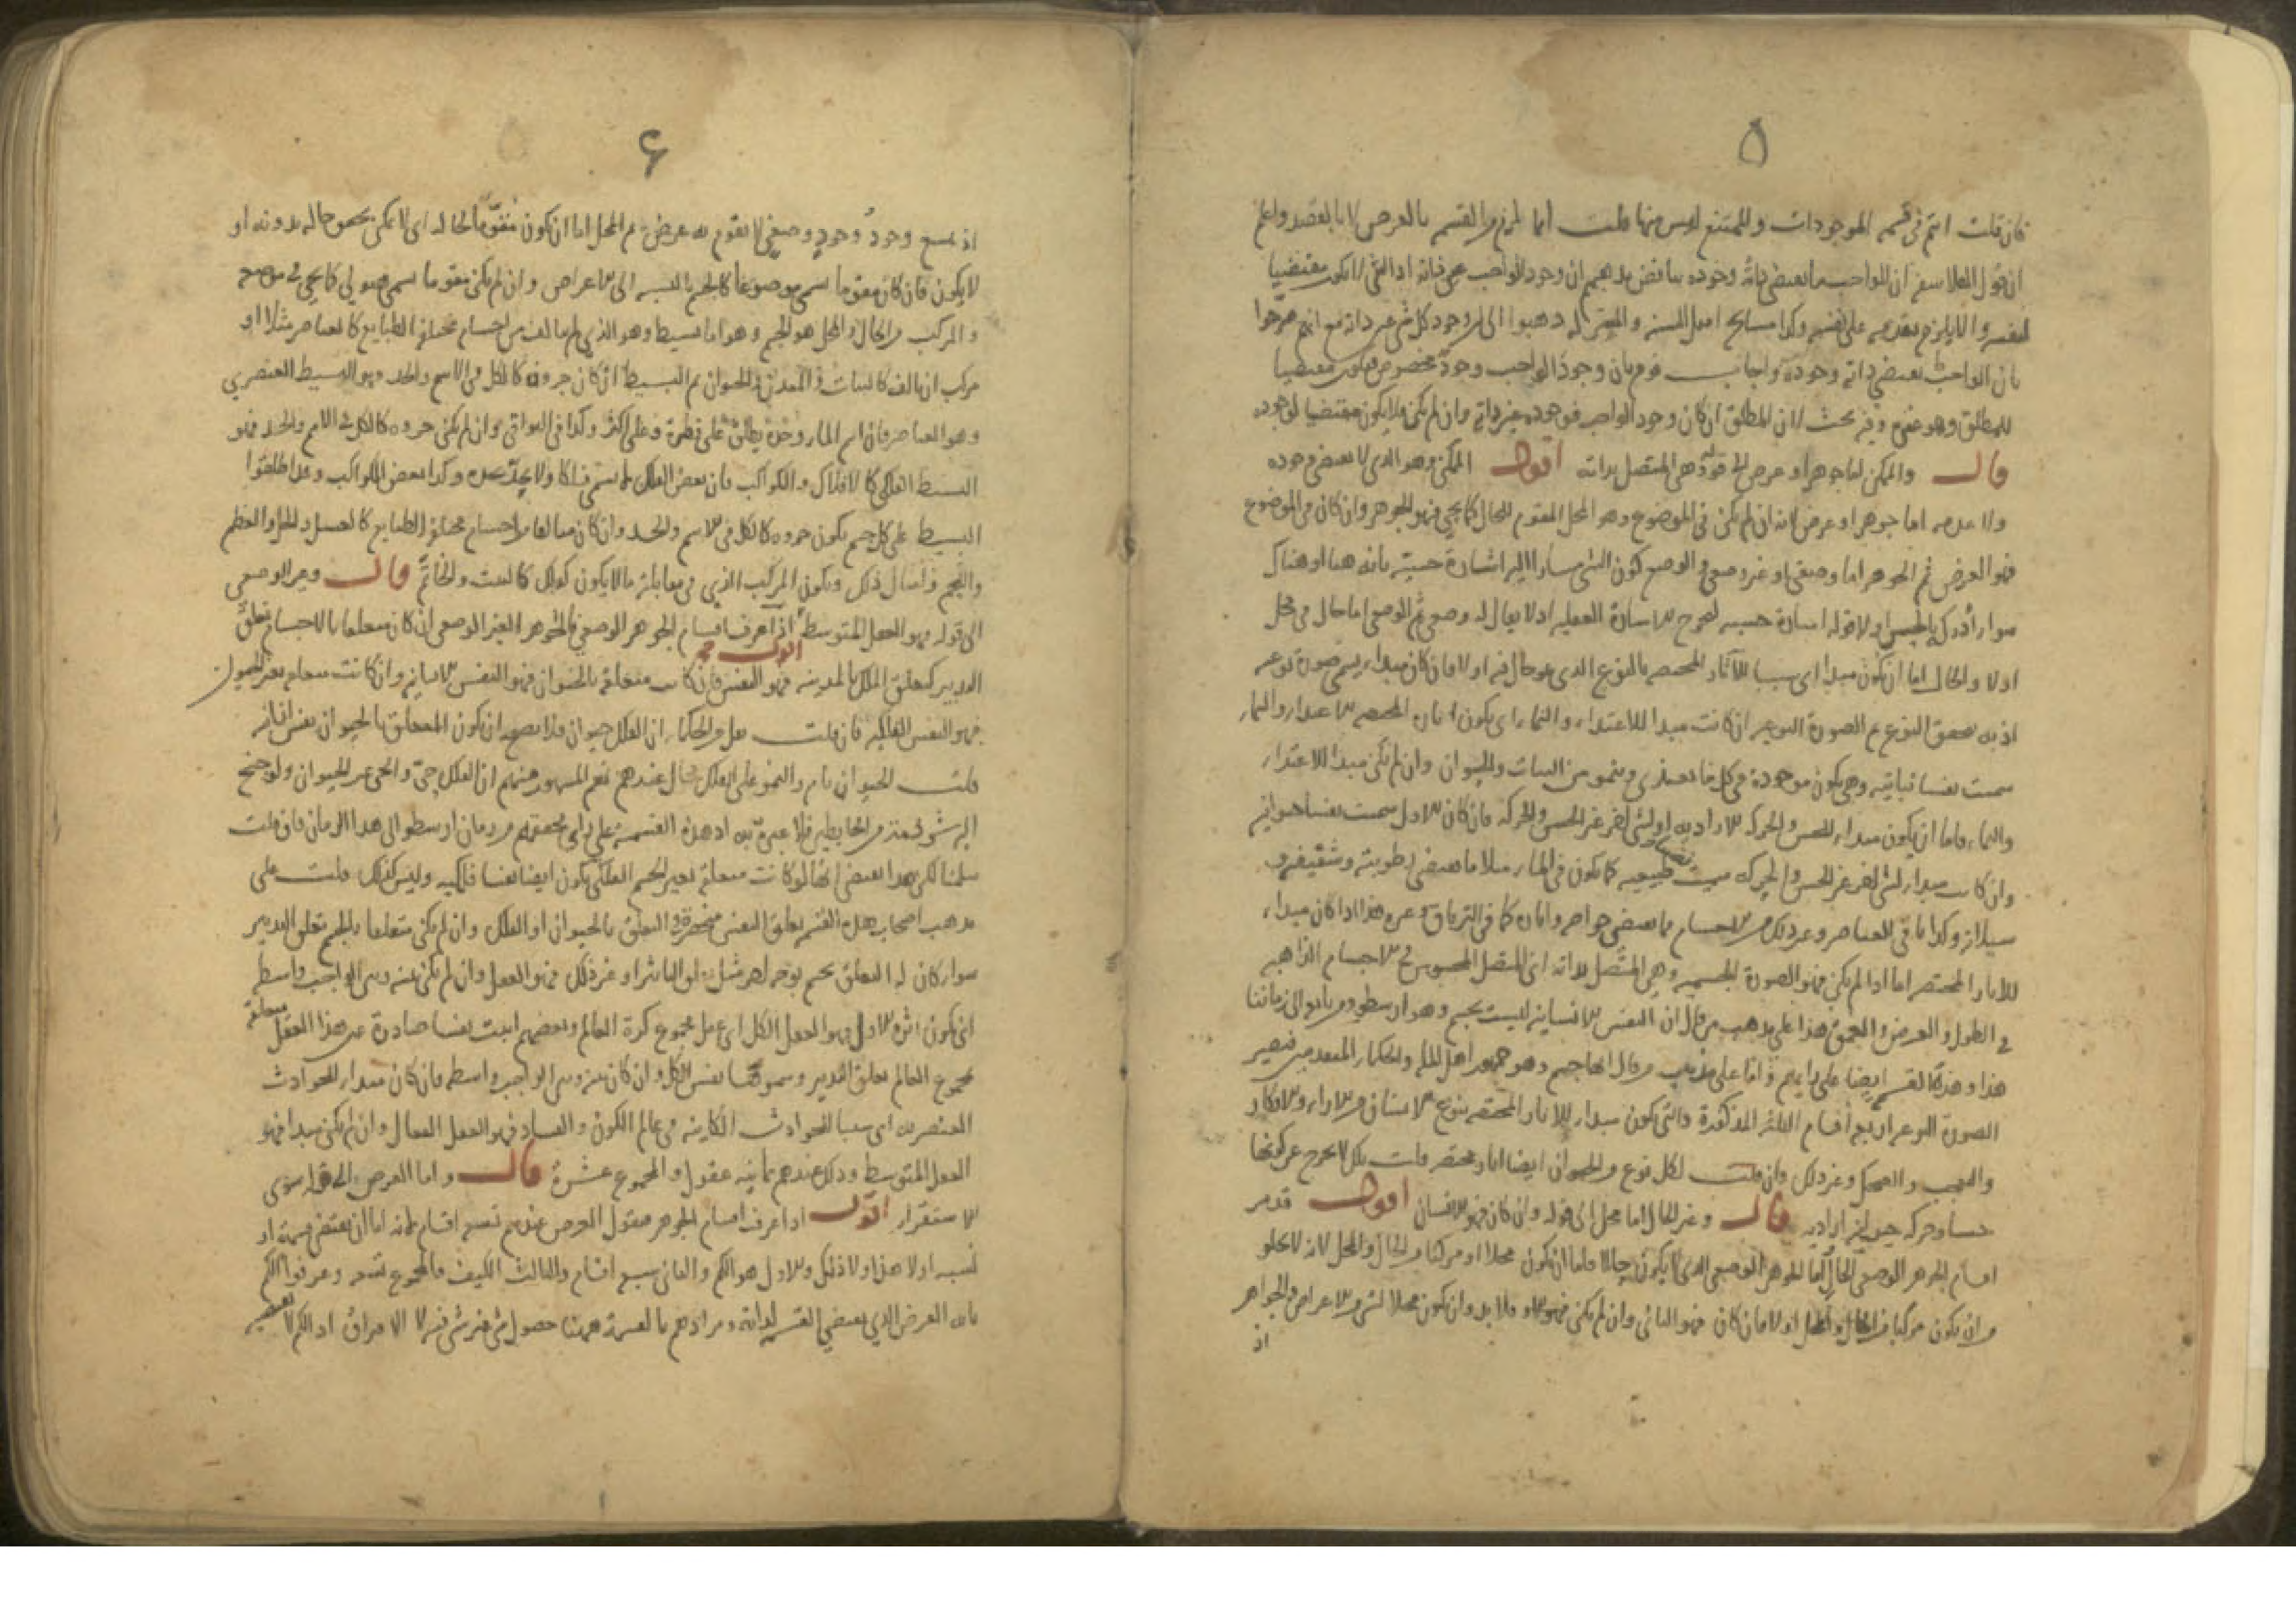 ٥
فان قلت انتم فى قسمة الموجودات والممتنع ليس منها قلت انما لزم من القسمة بالعرض لا بالقصد واعلم
ان قول الفلاسفة ان الواجب ما يقتضى ذاته وجوده يناقض مذهبهم ان وجود الواجب عين ذاته اذ الشى لا يكون مقتضيا
لنفسه والا يلزم تقدمه على نفسه وكذا مشايخ اهل السنة والمعتزلة ذهبوا الى ان وجود كل شى عين ذاته مع انهم صرحوا
بان الواجب يقتضى ذاته وجوده واجاب قوم بان وجود الواجب وجود مخصوص فيكون مقتضيا
للمطلق وهو غيره وفيه بحث لان المطلق ان كان وجود الواجب فوجوده غير ذاته وان لم يكن فلا يكون مقتضيا لوجوده
قال والممكن اما جوهر او عرض الى قوله وهى المتصل بذاته اقول الممكن وهو الذى لا يقتضى وجوده
ولا عدمه اما جوهر او عرض لانه ان لم يكن فى الموضوع وهو المحل المقوم للحال كما يجى فهو الجوهر وان كان فى الموضوع
فهو العرض ثم الجوهر اما وضعى او غير وضعى والوضع كون الشى مشارا اليه اشارة حسية بانه هنا او هناك
سواء ادرك بالحس او لا وقوله اشارة حسية لتخرج الاشارة العقلية اذ لا يقال له وضعى ثم الوضعى اما حال فى محل
او لا والحال اما ان يكون مبداء اى سببا للآثار المختصة بالنوع الذى هو حال فيه او لا فان كان مبداء يسمى صورة نوعية
اذ به يتحقق النوع ثم الصورة النوعية ان كانت مبدا للاغتذاء والنماء اى يكون اثاره المختصة الاغتذاء والنماء
سميت نفسا نباتية وهى يكون موجودة فى كل ما يغتذى وينمو من النبات والحيوان وان لم يكن مبدا للاغتذاء
والنماء فاما ان يكون مبداء للحس والحركة الارادية او لشى اخر غير الحس والحركة فان كان الاول سميت نفسا حيوانية
وان كانت مبداء لشى اخر غير الحس والحركة سميت طبيعية كما يكون فى الماء مثلا ما يقتضى رطوبته وشفيفه و
سيلانه وكذا باقى العناصر وغير ذلك من الاجسام مما يقتضى خواص واثار كما فى الترياق وغيره هذا اذا كان مبداء
للآثار المختصة اما اذا لم يكن فهو الصورة الجسمية وهى المتصل بذاته اى المتصل المحسوس فى الاجسام الذاهبة
فى الطول والعرض والعمق هذا على مذهب من قال ان النفس الانسانية ليست بجسم وهو ارسطو ومن تابعه الى زماننا
هذا وهذه القسمة ايضا على رايهم واما على مذهب من قال انها جسم وهو جمهور اهل الملل والحكماء المتقدمين فتصير
الصورة النوعية اربعة اقسام الثلثة المذكورة والتى يكون مبداء للآثار المختصة بنوع الانسان من الاراء والافكار
والتعجب والضحك وغير ذلك فان قلت لكل نوع من الحيوان ايضا اثار مختصة قلت تلك لا يخرج عن كونها
حسا وحركة حيوانية ارادية قال وغير الحال اما محل الى قوله وان كان فهو الانسان اقول قد مر
اقسام الجوهر الوضعى الحال اما الجوهر الوضعى الذى لا يكون حالا فاما ان يكون محلا او مركبا من الحال والمحل لانه لا يخلو
من ان يكون مركبا من الحال والمحل او لا فان كان فهو الثانى وان لم يكن فهو الاول ولا بد وان يكون محلا لشى من الاعراض والجواهر
اذ
٦
اذ يمتنع وجود وجود وضعى لا يقوم به عرض ثم المحل اما ان يكون مقوما لحاله اى لا يمكن تحقق حاله بدونه او
لا يكون فان كان مقوما سمى موضوعا كالجسم بالنسبة الى الاعراض وان لم يكن مقوما سمى هيولى كما يجى فى موضعه
والمركب من الحال والمحل هو الجسم وهو اما بسيط وهو الذى لم يتالف من اجسام مختلفة الطبايع كالعناصر مثلا او
مركب ان تالف كالنبات والمعدن والحيوان ثم البسيط ان كان جزوه كالكل فى الاسم والحد فهو البسيط العنصرى
وهو العناصر فان اسم الماء وحده يطلق على قطرة وعلى اكثر وكذا فى البواقى وان لم يكن جزوه كالكل فى الاسم والحد فهو
البسيط الفلكى كالافلاك والكواكب فان بعض الفلك لا يسمى فلكا ولا يحد بحده وكذا بعض الكواكب وقد اطلقوا
البسيط على كل جسم يكون جزوه كالكل فى الاسم والحد وان كان متالفا من اجسام مختلفة الطبايع كالعسل والخل والعظم
واللحم وامثال ذلك ويكون المركب الذى فى مقابلة ما لا يكون كذلك كالبيت والخاتم قال وغير الوضعى
الى قوله فهو العقل المتوسط اقول اذا عرف اقسام الجوهر الوضعى فالجوهر الغير الوضعى ان كان متعلقا بالاجسام تعلق
التدبير كتعلق الملك بالمدينة فهو النفس فان كانت متعلقة بالحيوان فهو النفس الانسانية وان كانت متعلقة بغير الحيوان
فهو النفس الفلكية فان قلت نقل من الحكماء ان الفلك حيوان فلا يصح ان يكون المتعلق بالحيوان نفس انسانية
قلت الحيوان نام والنمو على الفلك محال عندهم نعم المشهور عندهم ان الفلك حى والحى غير الحيوان ولو جنح
اليه شرذمة من الخابطين فلا عبرة به اذ هذه القسمة على راى محققيهم من زمان ارسطو الى هذا الزمان فان قلت
سلمنا لكن هذا يقتضى انها لو كانت متعلقة بغير الجسم الفلكى يكون ايضا نفسا فلكية وليس كذلك قلت على
مذهب اصحاب هذه القسمة تعلق النفس منحصرة فى التعلق بالحيوان او الفلك وان لم يكن متعلقا بالجسم تعلق التدبير
سواء كان له التعلق بجسم بوجه اخر مثل التاثير او غير ذلك فهو العقل وان لم يكن بينه وبين الواجب واسطة
اى يكون اثره الاول فهو العقل الكل اى عقل مجموع كرة العالم وبعضهم اثبت نفسا صادرة عن هذا العقل متعلقة
بمجموع العالم تعلق التدبير وسموها نفس الكل وان كان بينه وبين الواجب واسطة فان كان مبداء للحوادث
العنصرية اى سببا للحوادث الكاينة فى عالم الكون والفساد فهو العقل الفعال وان لم يكن مبدا فهو
العقل المتوسط وذلك عندهم ثمانية عقول والمجموع عشرة قال واما العرض الى قوله سوى
الاستقراء اقول اذا عرف اقسام الجوهر فنقول العرض عندهم تسعة اقسام لانه اما ان يقتضى قسمة او
نسبة او لا هذا ولا ذلك والاول هو الكم والثانى سبع اقسام والثالث الكيف فالمجموع تسعة وعرفوا الكم
بانه العرض الذى يقتضى القسمة لذاته ومرادهم بالقسمة ههنا حصول شى غير شى فيه لا الافتراق اذ الكم لا يقتضيه